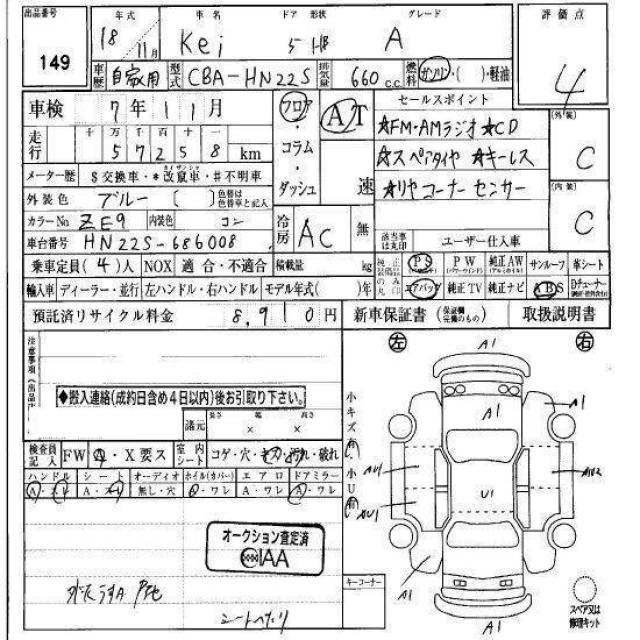 出品番号 年式 車名 ドア 形状 グレード 評価点
149 18 11月 Kei 5 HB A 4
車歴 自家用 型式 CBA-HN22S 排気量 660 c.c. 燃料 ガソリン・( )・軽油
車検 7年11月 フロア・コラム・ダッシュ AT 速 セールスポイント (外装) C
走行 十 万 千 百 十 一
57258 km
☆FM・AMラジオ ☆CD
☆スペアタイヤ ☆キーレス
☆リヤコーナーセンサー
メーター歴 $交換車・*改竄車・#不明車
(内装) C
外装色 ブルー ( ) 色替は色替車と記入
カラーNo ZE9 内装色 コン
冷房 AC 無
該当事は丸印 ユーザー仕入車
車台番号 HN22S-686008
乗車定員(4)人 NOX 適合・不適合 積載量 kg
純正装備品のみ丸印 PS PW 純正AW サンルーフ 革シート
輸入車 ディーラー・並行 左ハンドル・右ハンドル モデル年式( )年
エアバッグ 純正TV 純正ナビ ABS Dチューナー
預託済リサイクル料金 8,910円 新車保証書 (保証欄完備のもの) 取扱説明書
注意事項
左 右
◆搬入連絡(成約日含め4日以内)後お引取り下さい。
諸元 長さ 幅 高さ
× ×
検査員記入 FW A・X要ス 室内シート コゲ・穴・キズ・汚れ・破れ
ハンドル シート オーディオ ホイル(カバー) エアロ ドアミラー
A・スレ A・スレ 無し・穴 A・ワレ A・ワレ A・ワレ
小キズ 小U
A1
A1 A1
AU1 U1
AU1
A1
A1
オークション査定済
IAA
シートへたり
キーコーナー
スペア又は修理キット